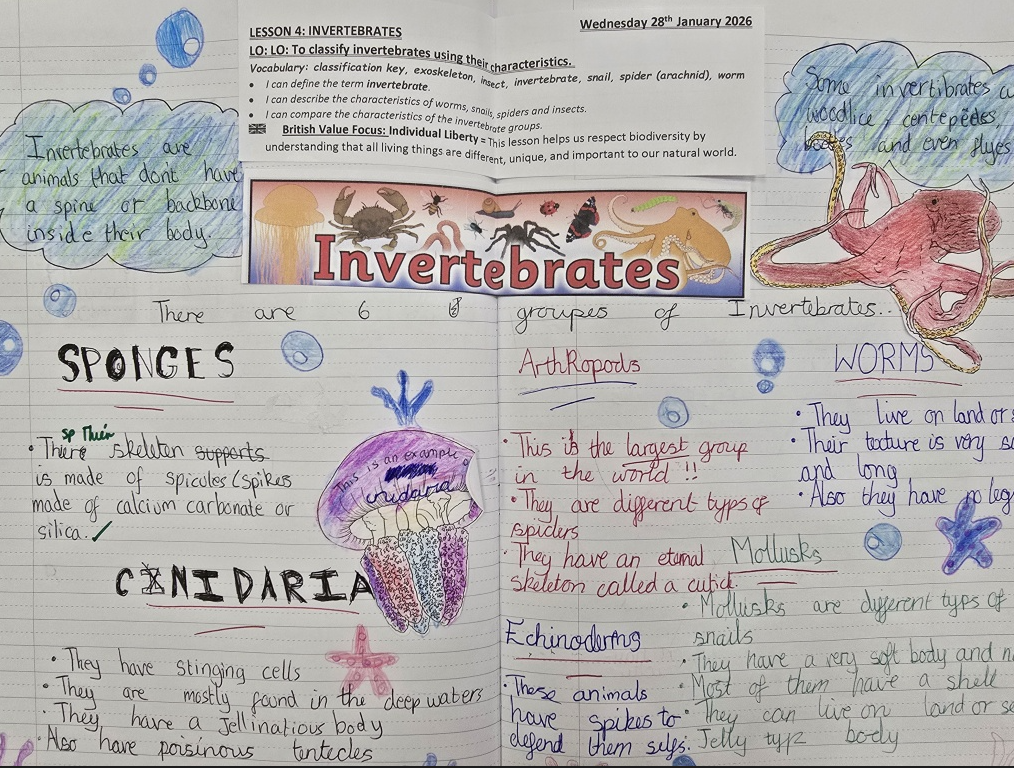 LESSON 4: INVERTEBRATES
Wednesday 28th January 2026
LO: LO: To classify invertebrates using their characteristics.
Vocabulary: classification key, exoskeleton, insect, invertebrate, snail, spider (arachnid), worm
• I can define the term invertebrate.
• I can describe the characteristics of worms, snails, spiders and insects.
• I can compare the characteristics of the invertebrate groups.
British Value Focus: Individual Liberty = This lesson helps us respect biodiversity by
understanding that all living things are different, unique, and important to our natural world.
Invertebrates are
animals that dont have
a spine or backbone
inside their body.
Some invertibrates
woodlice, centepedes,
and even flyes
Invertebrates
There are 6 groupes of Invertebrates..
SPONGES
• There sp Their skeleton supports
is made of spicules (spikes
made of calcium carbonate or
silica.
This is an example
cnidaria
CNIDARIA
• They have stinging cells
• They are mostly found in the deep waters
• They have a Jellinatious body
• Also have poisinous tentecles
ArthRopods
• This is the largest group
in the world !!
• They are different typs of
spiders
• They have an eternal
skeleton called a cuticl.
Echinoderms
• These animals
have spikes to
defend them selfs.
WORMS
• They live on land or
• Their texture is very
and long
• Also they have no leg
Mollusks
• Mollusks are different typs of
snails
• They have a very soft body and
• Most of them have a shell
• They can live on land or
• Jelly type body